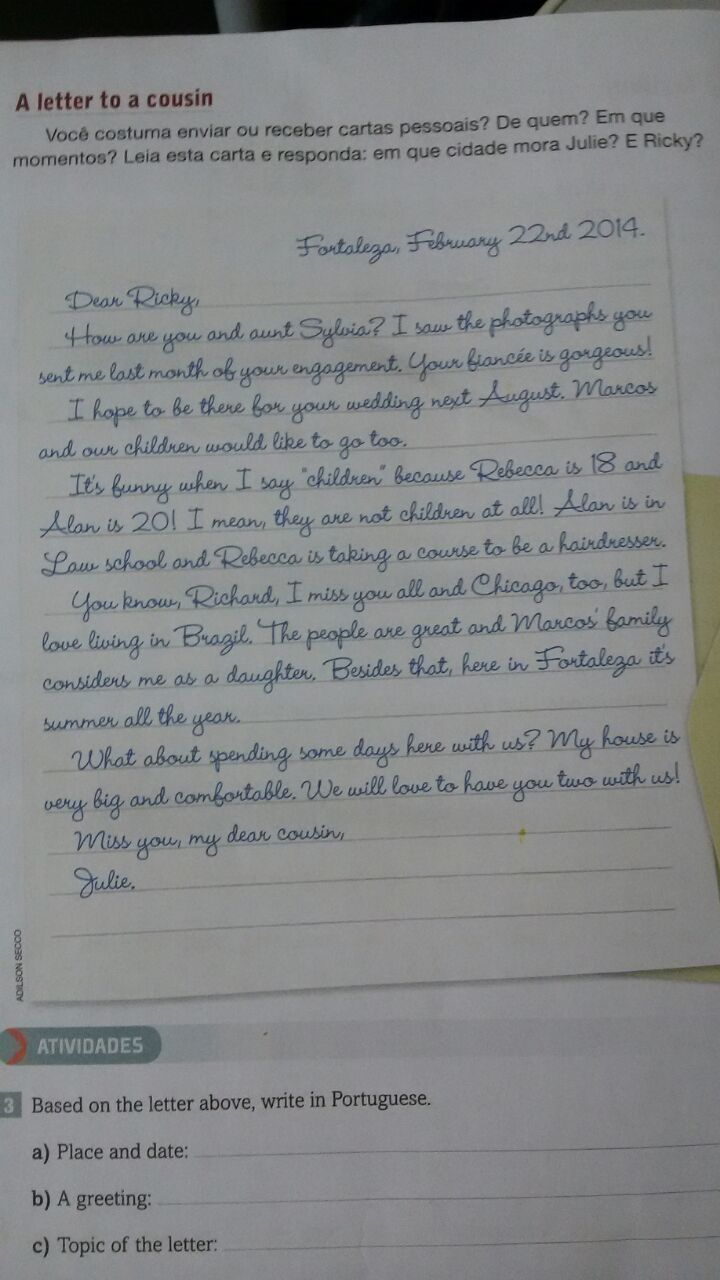 A letter to a cousin
Você costuma enviar ou receber cartas pessoais? De quem? Em que
momentos? Leia esta carta e responda: em que cidade mora Julie? E Ricky?
Fortaleza, February 22nd 2014.
Dear Ricky,
How are you and aunt Sylvia? I saw the photographs you
sent me last month of your engagement. Your fiancée is gorgeous!
I hope to be there for your wedding next August. Marcos
and our children would like to go too.
It's funny when I say "children" because Rebecca is 18 and
Alan is 20! I mean, they are not children at all! Alan is in
Law school and Rebecca is taking a course to be a hairdresser.
You know, Richard, I miss you all and Chicago, too, but I
love living in Brazil. The people are great and Marcos' family
considers me as a daughter. Besides that, here in Fortaleza it's
summer all the year.
What about spending some days here with us? My house is
very big and comfortable. We will love to have you two with us!
Miss you, my dear cousin,
Julie.
ADILSON SECCO
ATIVIDADES
3 Based on the letter above, write in Portuguese.
a) Place and date:
b) A greeting:
c) Topic of the letter: